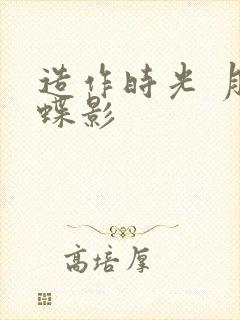 造作時光
蝶影
高培厚